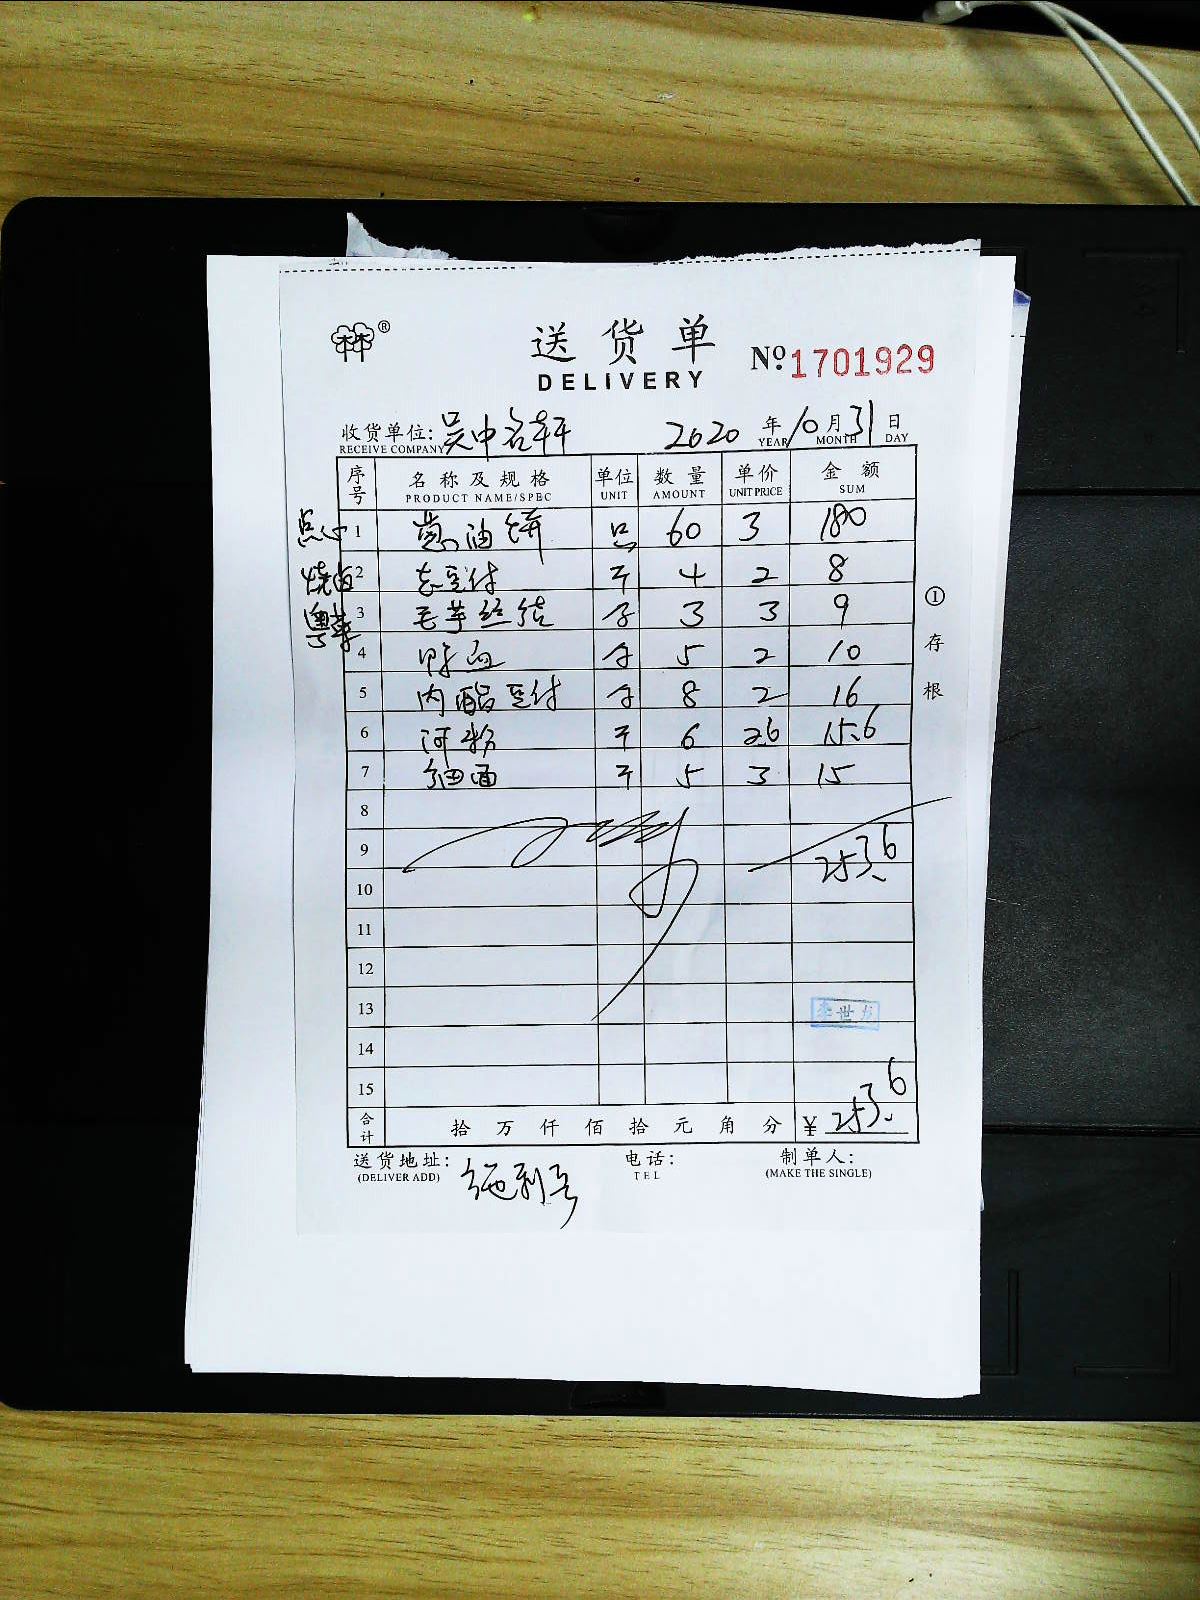 林®
送货单
DELIVERY
Nº 1701929
收货单位: 吴中名轩 2020 年 10 月 31 日
RECEIVE COMPANY YEAR MONTH DAY
序号 名称及规格 单位 数量 单价 金额
PRODUCT NAME/SPEC UNIT AMOUNT UNIT PRICE SUM
点心 1 葱油饼 只 60 3 180
烧卤 2 老豆付 斤 4 2 8
粤菜 3 毛芋丝结 3 3 9
4 鸭血 5 2 10
5 内酯豆付 8 2 16
6 河粉 斤 6 2.6 15.6
7 细面 斤 5 3 15
8
9 253.6
10
11
12
13 李世龙
14
15
合计 拾 万 仟 佰 拾 元 角 分 ¥ 253.6
送货地址: 电话: 制单人:
(DELIVER ADD) TEL (MAKE THE SINGLE)
①存根